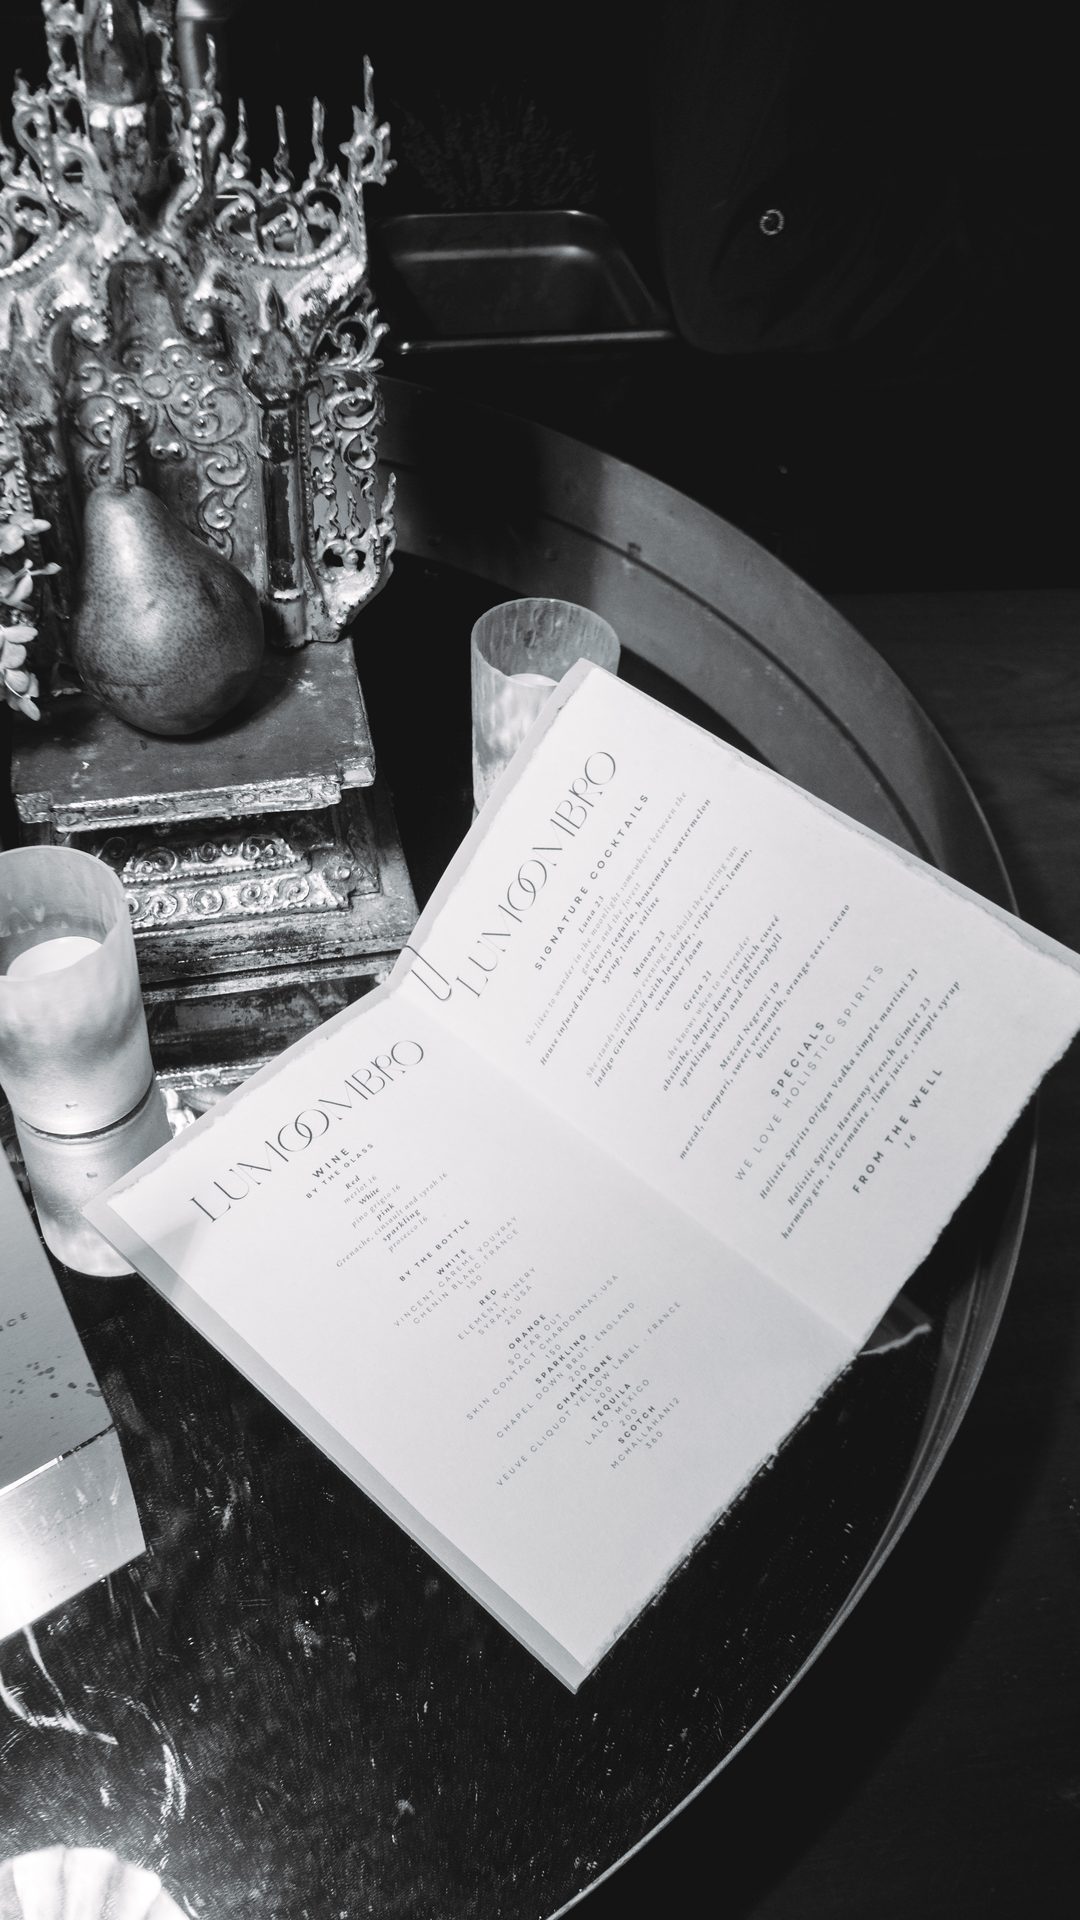 LUMOOMBRO
WINE
BY THE GLASS
Red
merlot 16
White
pino grigio 16
pink
Grenache, cinsault and syrah 16
sparkling
prosecco 16
BY THE BOTTLE
WHITE
VINCENT CAREME VOUVRAY
CHENIN BLANC,FRANCE
150
RED
ELEMENT WINERY
SYRAH, USA
250
ORANGE
SO FAR OUT
SKIN CONTACT CHARDONNAY,USA
150
SPARKLING
CHAPEL DOWN BRUT, ENGLAND
200
CHAMPAGNE
VEUVE CLIQUOT YELLOW LABEL , FRANCE
400
TEQUILA
LALO, MEXICO
200
SCOTCH
MCHALLAHAN12
360
LUMOOMBRO
SIGNATURE COCKTAILS
Luna 23
She likes to wander in the moonlight somewhere between the
garden and the forest
House infused black berry tequila, housemade watermelon
syrup, lime, saline
Manon 23
She stands still every evening to behold the setting sun
Indigo Gin infused with lavender, triple sec, lemon,
cucumber foam
Greta 21
she knows when to surrender
absinthe, chapel down (english cuvé
sparkling wine) and chlorophyll
Mezcal Negroni 19
mezcal, Campari, sweet vermouth, orange zest , cacao
bitters
SPECIALS
WE LOVE HOLISTIC SPIRITS
Holistic Spirits Origen Vodka simple martini 21
Holistic Spirits Harmony French Gimlet 23
harmony gin , st Germaine , lime juice , simple syrup
FROM THE WELL
16